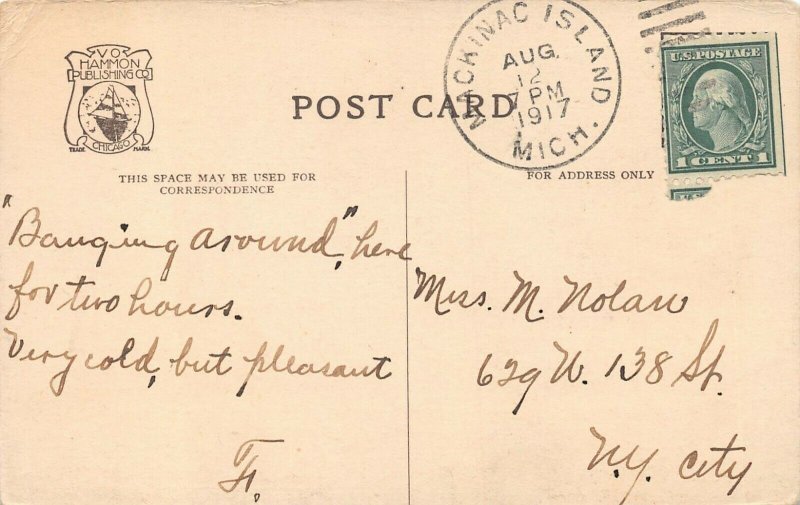 V.O.
HAMMON
PUBLISHING CO
CHICAGO
TRADE MARK
POST CARD
MACKINAC ISLAND
AUG.
12
7 PM
1917
MICH.
U.S. POSTAGE
1 CENT 1
THIS SPACE MAY BE USED FOR
CORRESPONDENCE
FOR ADDRESS ONLY
"Banging around", here
for two hours.
Very cold, but pleasant
F.
Miss. M. Nolan
629 W. 138 St.
N.Y. City